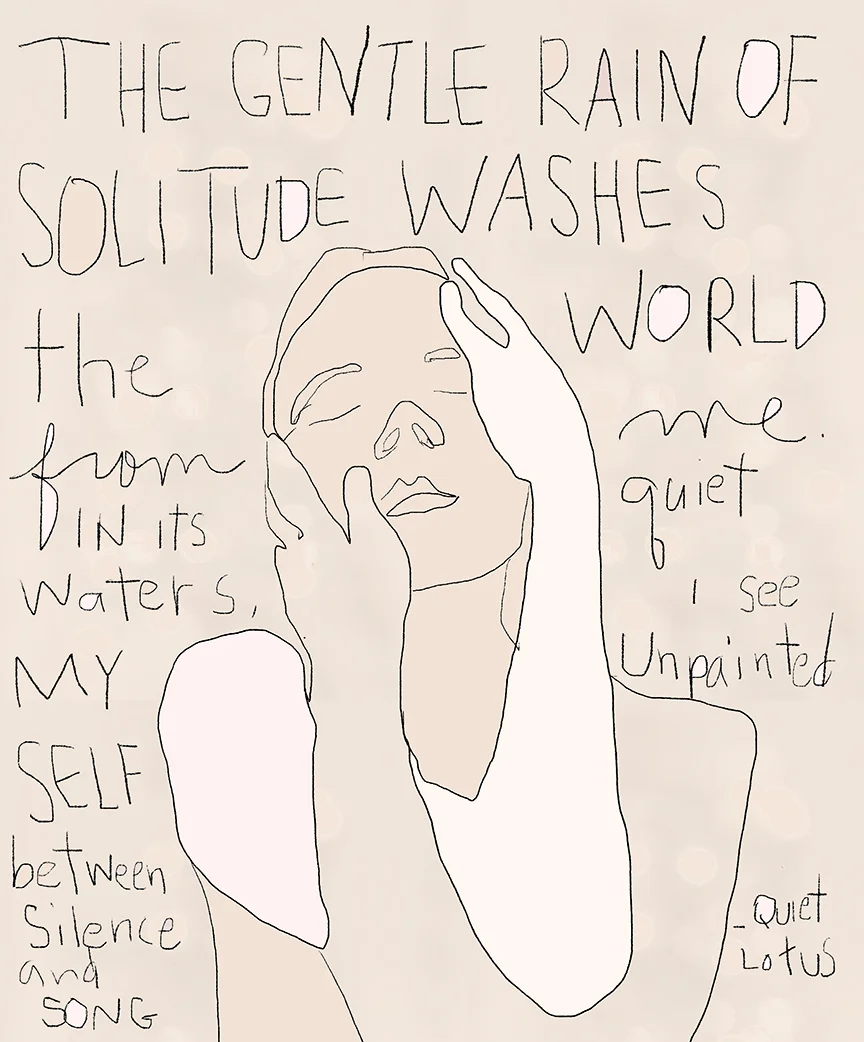 THE GENTLE RAIN OF
SOLITUDE WASHES
the WORLD
from me.
IN its quiet
waters, I see
MY Unpainted
SELF
between
Silence
and
SONG
_Quiet
Lotus